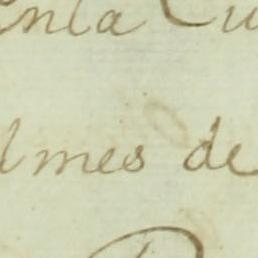 enla Cu
l mes de